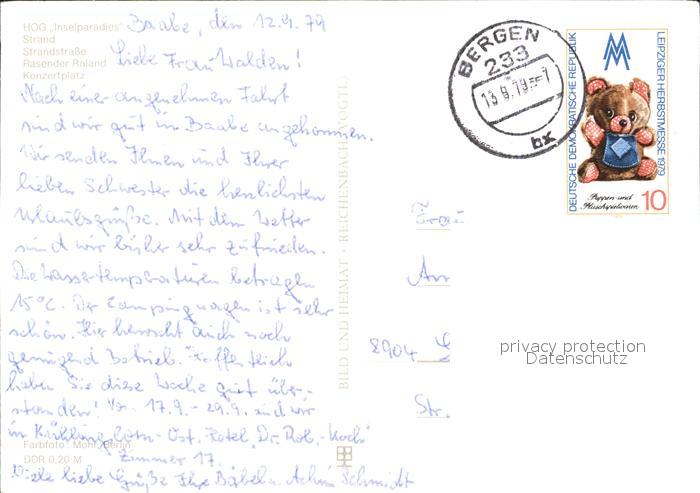 HOG „Inselparadies"
Strand
Strandstraße
Rasender Roland
Konzertplatz
Baabe, den 12.9.79
Liebe Frau Walden!
Nach einer angenehmen Fahrt
sind wir gut in Baabe angekommen.
Wir senden Ihnen und Ihrer
lieben Schwester die herzlichsten
Urlaubsgrüße. Mit dem Wetter
sind wir bisher sehr zufrieden.
Die Wassertemperaturen betragen
15°C. Der Campingwagen ist sehr
schön. Hier herrscht auch noch
genügend Betrieb. Hoffentlich
haben Sie diese Woche gut über-
standen! Vom 17.9. - 29.9. sind wir
in Kühlungsborn-Ost, Hotel „Dr. Rob. Koch"
Zimmer 17.
Viele liebe Grüße Ihre Bärbel u. Achim Schmidt
Farbfoto: Mohr, Berlin
DDR 0,20 M
BILD UND HEIMAT · REICHENBACH (VOGTL)
BERGEN
233
13.9.79
bx
DEUTSCHE DEMOKRATISCHE REPUBLIK
LEIPZIGER HERBSTMESSE 1979
Puppen und
Plüschspielwaren
10
Frau
8904
Str.
privacy protection
Datenschutz